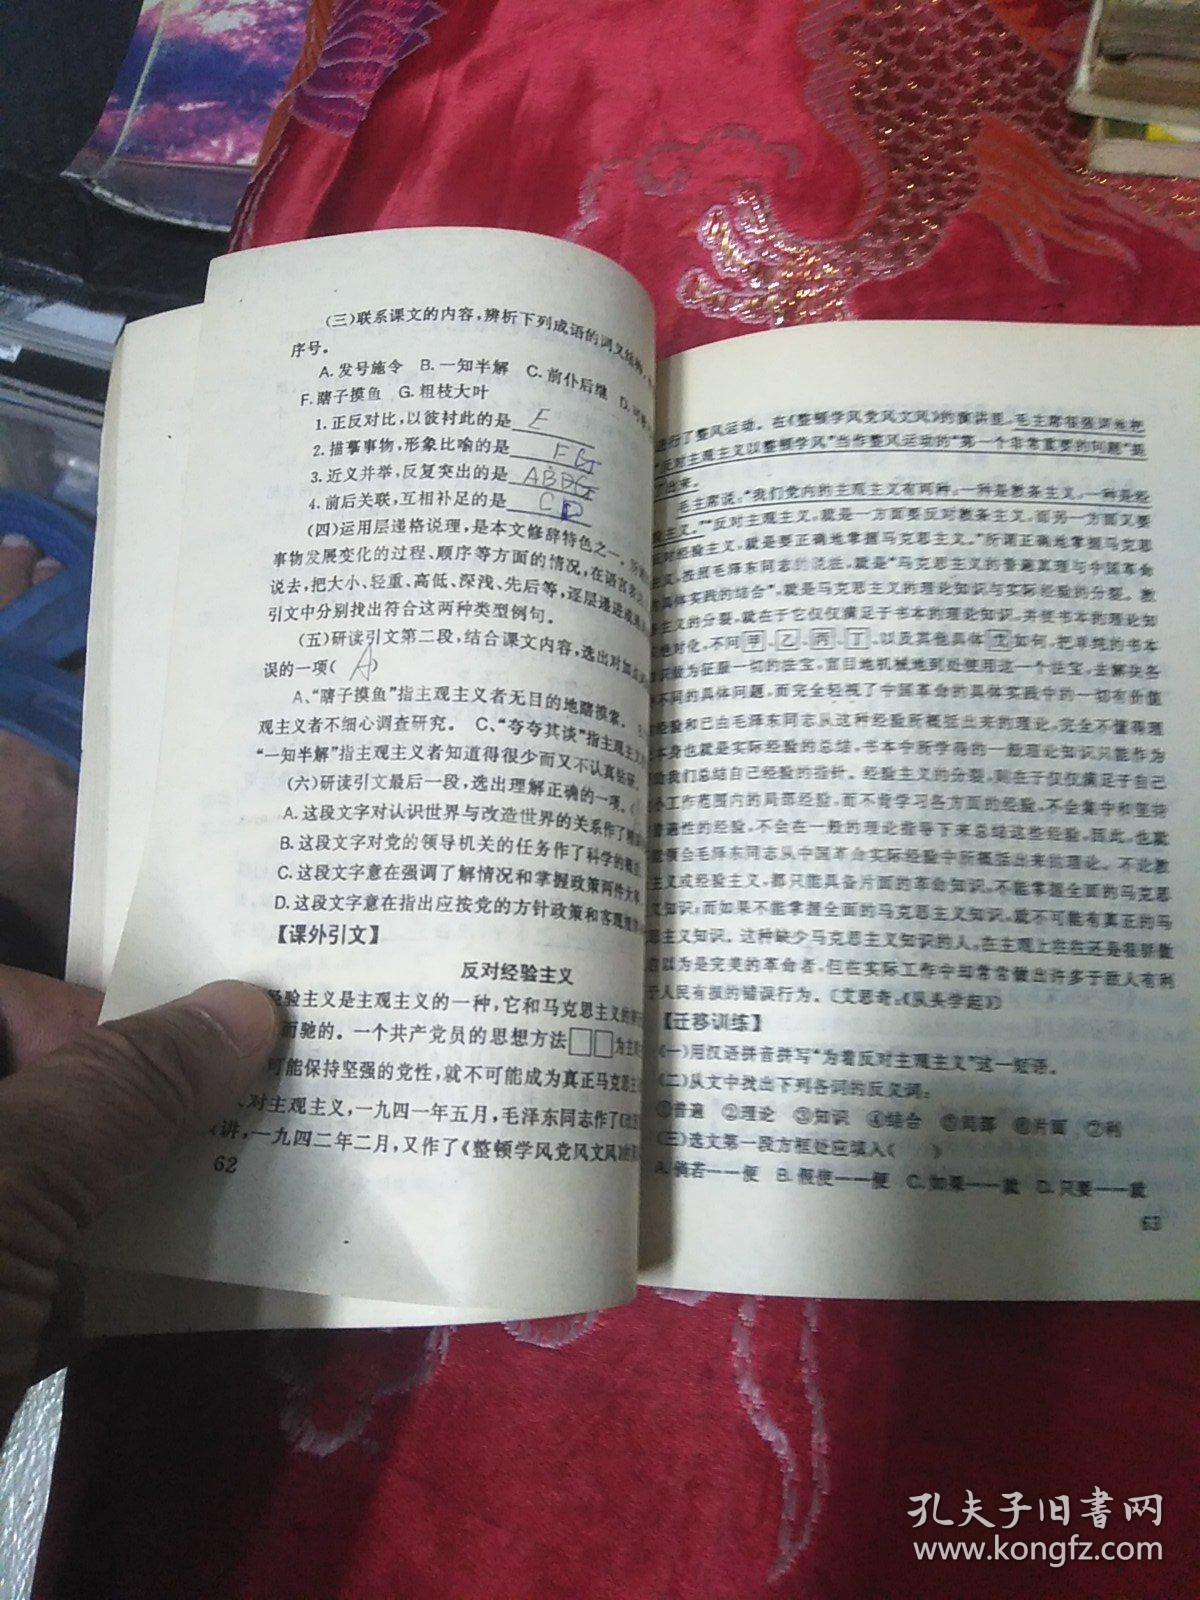 (三)联系课文的内容,辨析下列成语的词义结构,
序号。
A.发号施令 B.一知半解 C.前仆后继 D.
F.瞎子摸鱼 G.粗枝大叶
1.正反对比,以彼衬此的是 E
2.描摹事物,形象比喻的是 F G
3.近义并举,反复突出的是 ABDG
4.前后关联,互相补足的是 C D
(四)运用层递格说理,是本文修辞特色之一。所谓
事物发展变化的过程、顺序等方面的情况,在语言表
说去,把大小、轻重、高低、深浅、先后等,逐层递进或
引文中分别找出符合这两种类型例句。
(五)研读引文第二段,结合课文内容,选出对加点
误的一项( A )
A、“瞎子摸鱼”指主观主义者无目的地瞎摸索。
观主义者不细心调查研究。 C、“夸夸其谈”指主观主义
“一知半解”指主观主义者知道得很少而又不认真钻研。
(六)研读引文最后一段,选出理解正确的一项。(
A.这段文字对认识世界与改造世界的关系作了
B.这段文字对党的领导机关的任务作了科学的概
C.这段文字意在强调了解情况和掌握政策两件大事
D.这段文字意在指出应按党的方针政策和客观
【课外引文】
反对经验主义
经验主义是主观主义的一种,它和马克思主义的
而驰的。一个共产党员的思想方法□□为主
可能保持坚强的党性,就不可能成为真正马克思主
对主观主义,一九四一年五月,毛泽东同志作了《改
讲,一九四二年二月,又作了《整顿学风党风文风》的
62
进行了整风运动。在《整顿学风党风文风》的演讲里,毛主席很强调地把
“反对主观主义以整顿学风”当作整风运动的“第一个非常重要的问题”提
了出来。
毛主席说:“我们党内的主观主义有两种:一种是教条主义,一种是经
验主义。”“反对主观主义,就是一方面要反对教条主义,而另一方面又要
反对经验主义,就是要正确地掌握马克思主义。”所谓正确地掌握马克思
主义,按照毛泽东同志的说法,就是“马克思主义的普遍真理与中国革命
的具体实践的结合”,就是马克思主义的理论知识与实际经验的分裂。教
条主义的分裂,就在于它仅仅满足于书本的理论知识,并使书本的理论知
识绝对化,不问甲、乙、丙、丁、以及其他具体戊如何,把单纯的书本
知识做为征服一切的法宝,盲目地机械地到处使用这一个法宝,去解决各
种不同的具体问题,而完全轻视了中国革命的具体实践中的一切有价值
的经验和已由毛泽东同志从这种经验所概括出来的理论,完全不懂得理
论本身也就是实际经验的总结,书本中所学得的一般理论知识只能作为
帮助我们总结自己经验的指针。经验主义的分裂,则在于仅仅满足于自己
狭小工作范围内的局部经验,而不肯学习各方面的经验,不会集中和坚持
普遍性的经验,不会在一般的理论指导下来总结这些经验,因此,也就
不能领会毛泽东同志从中国革命实际经验中所概括出来的理论。不论教
条主义或经验主义,都只能具备片面的革命知识,不能掌握全面的马克思
主义知识;而如果不能掌握全面的马克思主义知识,就不可能有真正的马
克思主义知识。这种缺少马克思主义知识的人,在主观上往往还是很骄傲
自以为是完美的革命者,但在实际工作中却常常做出许多于敌人有利
于人民有损的错误行为。〔艾思奇:《从头学起》〕
【迁移训练】
(一)用汉语拼音拼写“为着反对主观主义”这一短语。
(二)从文中找出下列各词的反义词:
①普遍 ②理论 ③知识 ④结合 ⑤局部 ⑥片面 ⑦利
(三)选文第一段方框处应填入( )
A.倘若——便 B.假使——便 C.如果——就 D.只要——就
63
孔夫子旧书网
www.kongfz.com